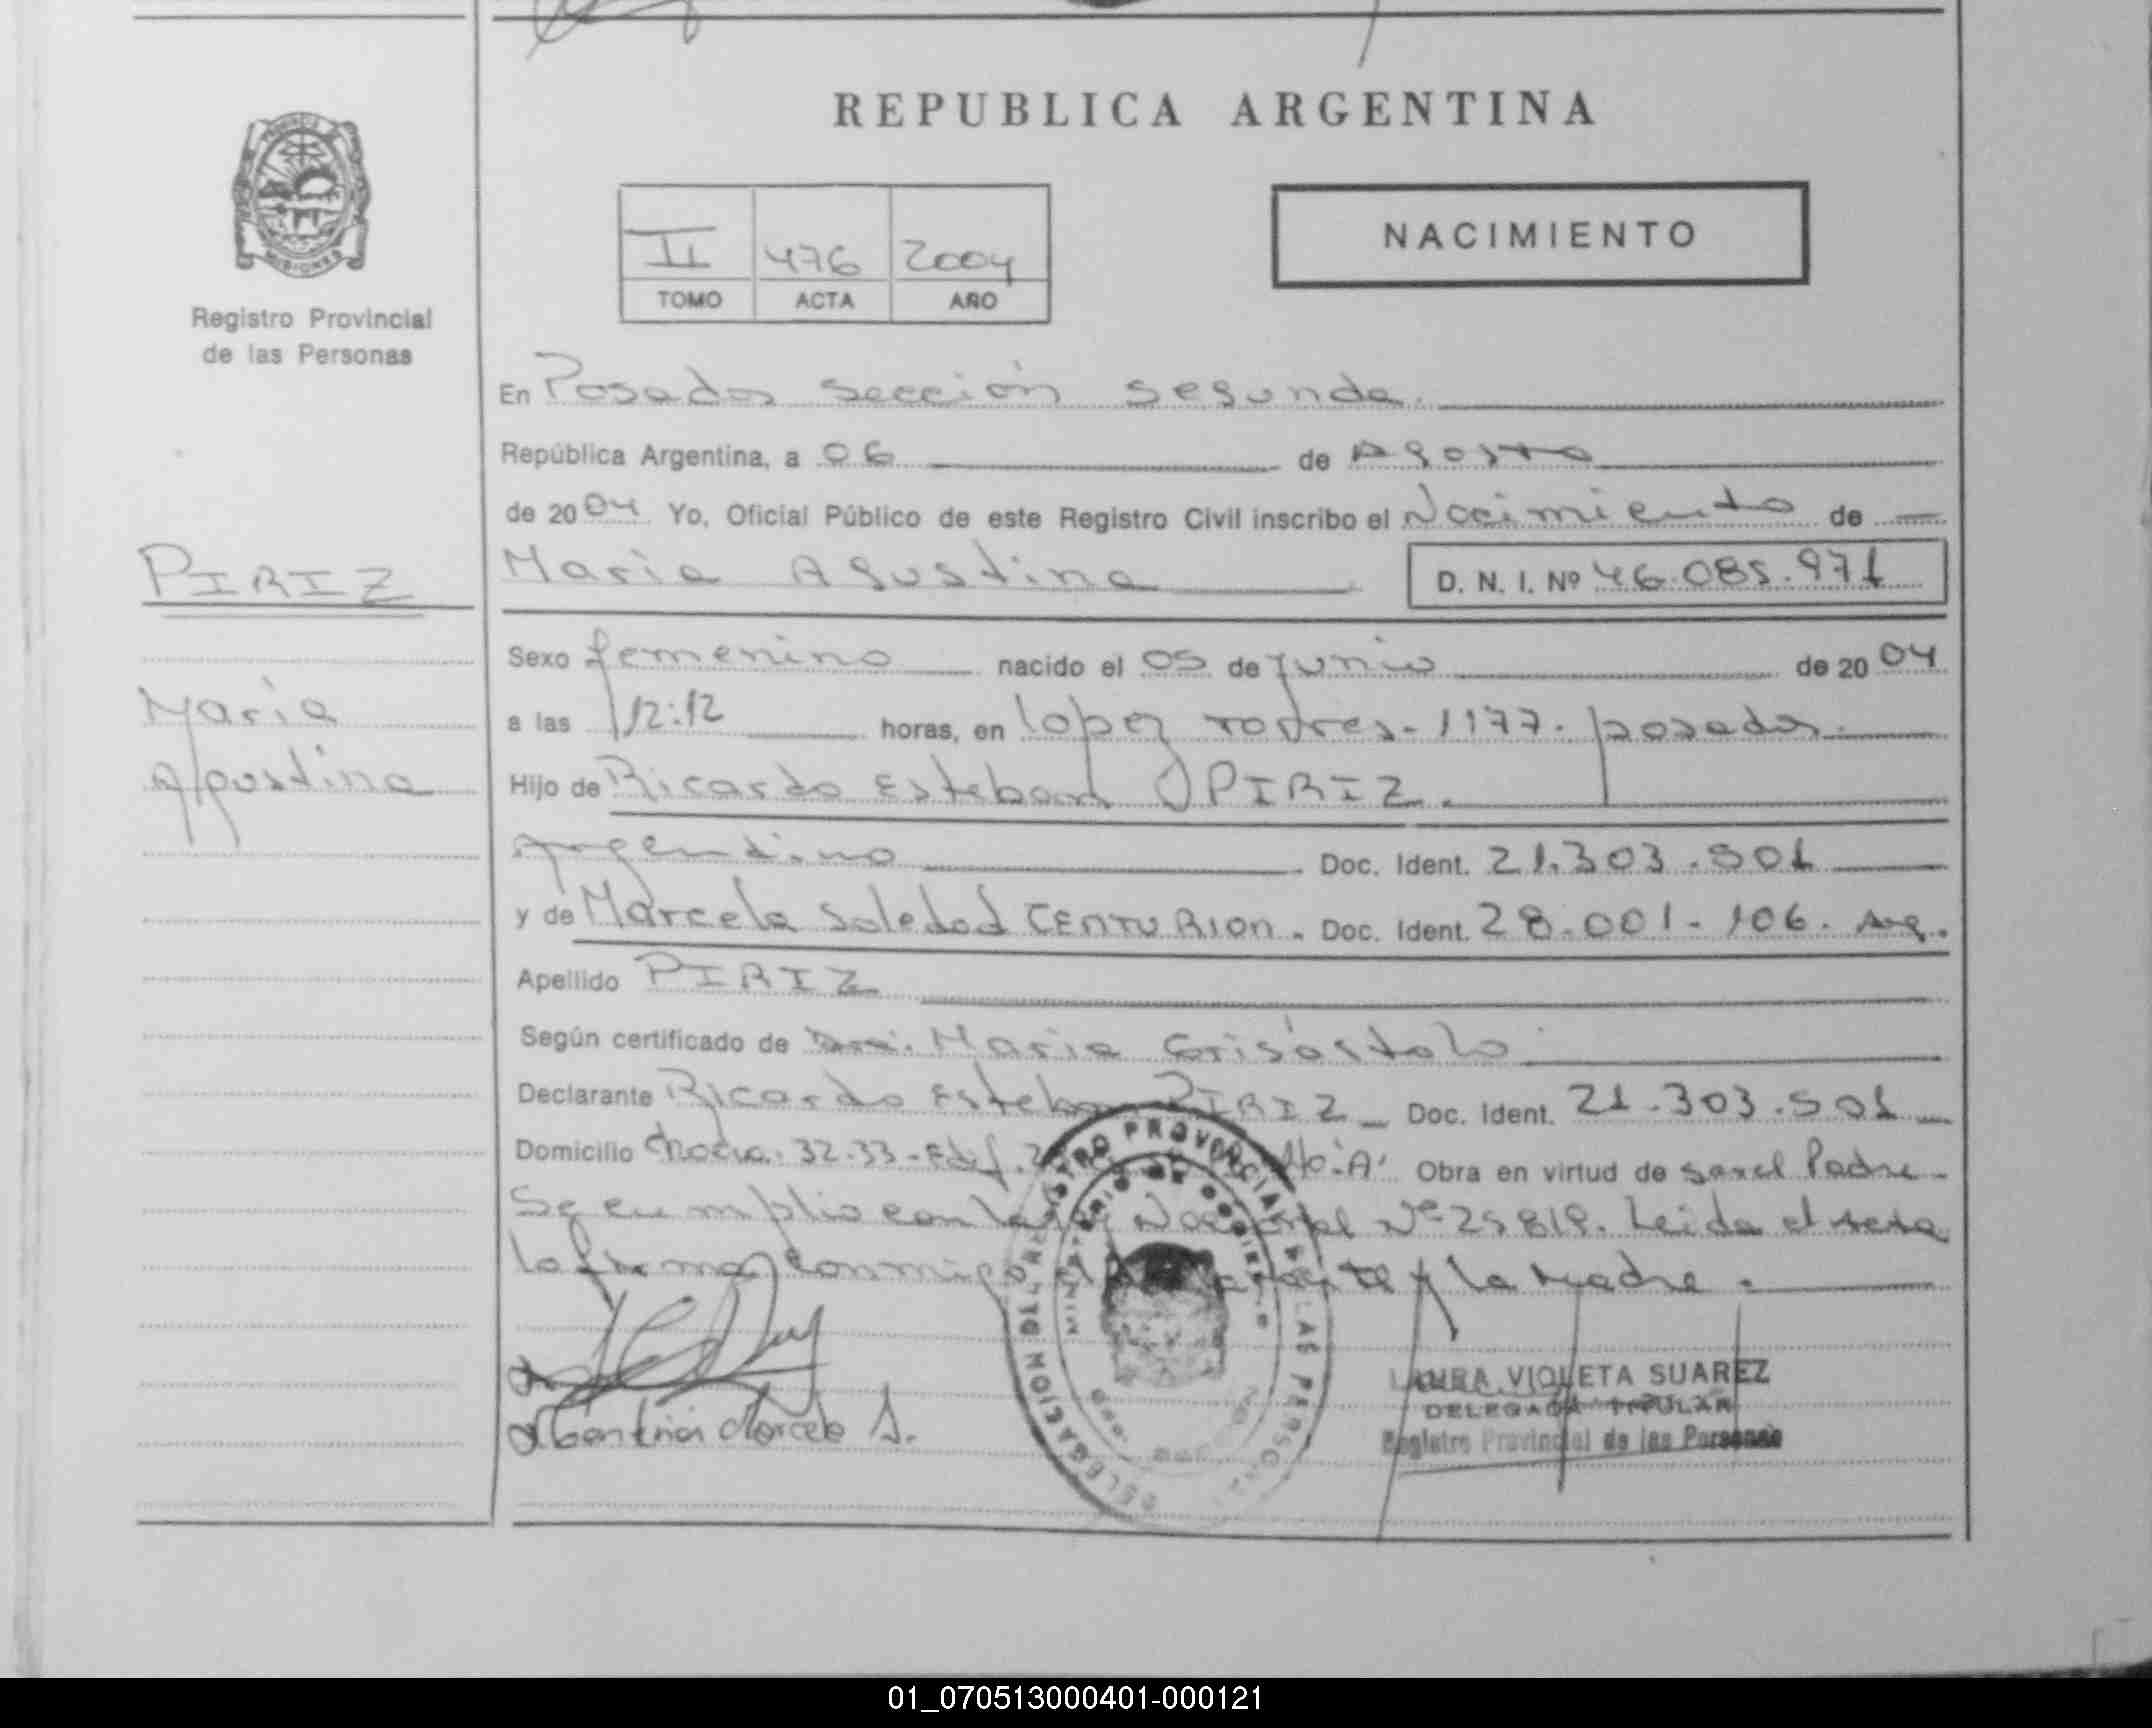 REPUBLICA ARGENTINA
PROVINCIA DE MISIONES
Registro Provincial
de las Personas
II 476 2004
TOMO ACTA AÑO
NACIMIENTO
En Posadas sección segunda.
República Argentina, a 06 de Agosto
de 2004 Yo, Oficial Público de este Registro Civil inscribo el Nacimiento de
PIRIZ
Maria Agustina D. N. I. Nº 46.085.971
Sexo femenino nacido el 05 de junio de 2004
Maria
a las 12:12 horas, en lopez torres - 1177. posadas.
Agustina
Hijo de Ricardo Esteban PIRIZ.
Argentino Doc. Ident. 21.303.501
y de Marcela Soledad CENTURION. Doc. Ident. 28.001.106. Arg.
Apellido PIRIZ
Según certificado de Dra. Maria Grisóstolo
Declarante Ricardo Esteban PIRIZ Doc. Ident. 21.303.501
Domicilio Chacra. 32-33-Edif. "A" Obra en virtud de ser el Padre
Se cumplio con la Ley Nacional Nº 25819. Leida el acta
la firma conmigo el declarante y la Madre.
REGISTRO PROVINCIAL DE LAS PERSONAS
MINISTERIO DE GOBIERNO
DELEGACION
LAURA VIOLETA SUAREZ
DELEGADA TITULAR
Registro Provincial de las Personas
Marcela S.
01_070513000401-000121